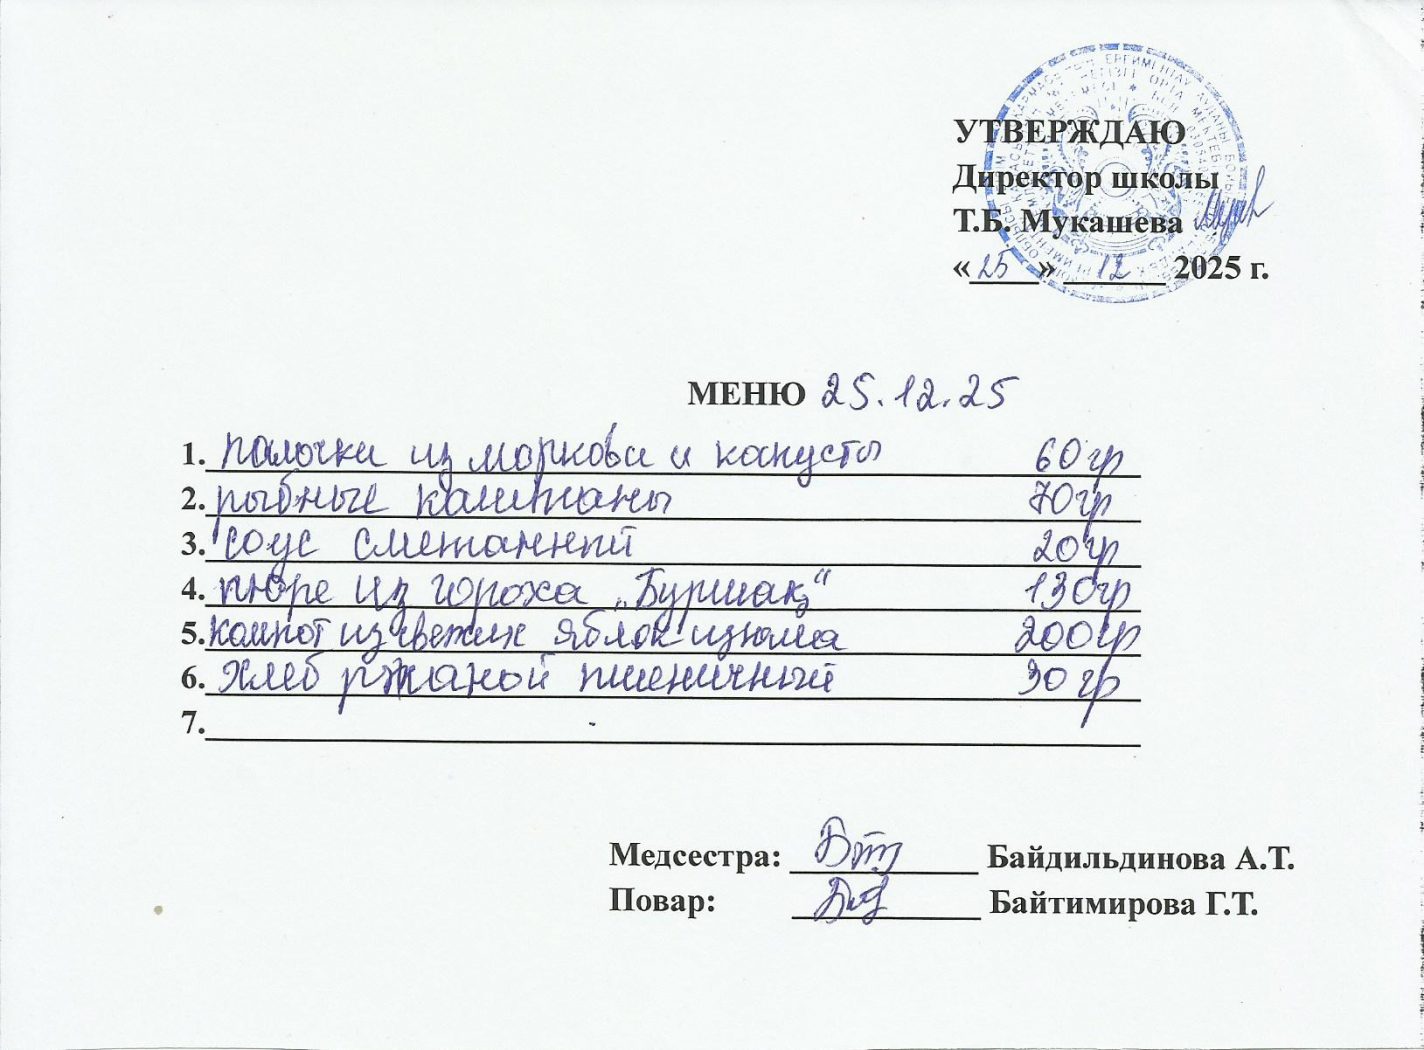 УТВЕРЖДАЮ
Директор школы
Т.Б. Мукашева
«25» 12 2025 г.
МЕНЮ 25.12.25
1. палочки из моркови и капусты 60гр
2. рыбные каштаны 70гр
3. соус сметанный 20гр
4. пюре из гороха „Буршақ“ 130гр
5. компот из свежих яблок изюма 200гр
6. хлеб ржаной пшеничный 30гр
7.
Медсестра: Байдильдинова А.Т.
Повар: Байтимирова Г.Т.